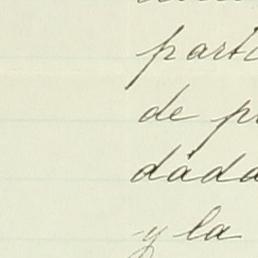 parti
de p
dada
y la